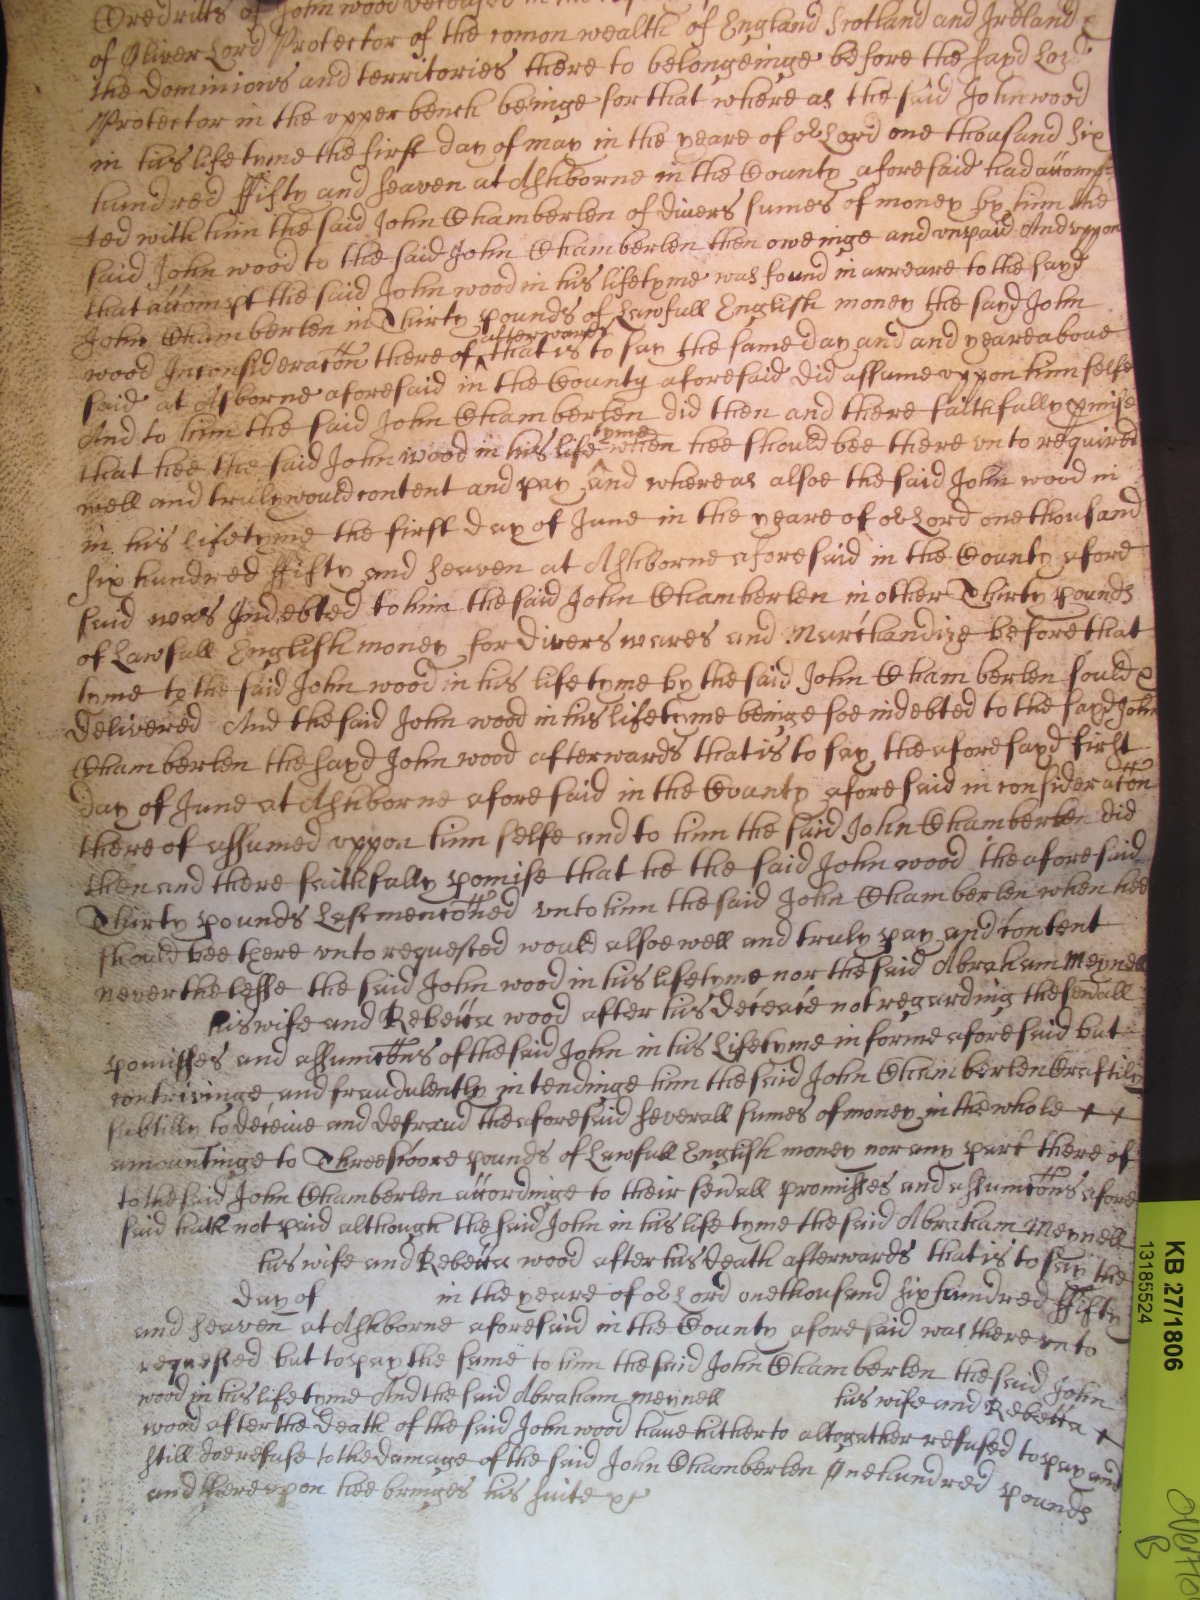 Creditts of John wood deceased in the
of Oliver Lord Protector of the comon wealth of England Scotland and Ireland &
the Dominions and territories there to belongeinge before the sayd Lord
Protector in the upper bench beinge for that where as the said John wood
in his life tyme the first day of may in the yeare of our Lord one thousand six
hundred ffifty and seaven at Ashborne in the County aforesaid had accomp=
ted with him the said John Chamberlen of divers sumes of money by him the
said John wood to the said John Chamberlen then oweinge and unpaid And uppon
that accompt the said John wood in his lifetyme was found in arreare to the sayd
John Chamberlen in Thirty pounds of Lawfull English money the sayd John
wood In consideracon there of afterwards that is to say the same day and and yeare above
said at Asborne aforesaid in the County aforesaid did assume uppon him selfe
And to him the said John Chamberlen did then and there faithfully pmise
that hee the said John wood in his life tyme when hee should bee there unto required
well and truly would content and pay And where as alsoe the said John wood in
in his lifetyme the first day of June in the yeare of our Lord one thousand
six hundred ffifty and seaven at Ashborne aforesaid in the County afore
said was Indebted to him the said John Chamberlen in other Thirty pounds
of Lawfull English money for divers wares and Marchandize before that
tyme to the said John wood in his life tyme by the said John Chamberlen sould &
delivered And the said John wood in his lifetyme beinge soe indebted to the sayd John
Chamberlen the sayd John wood afterwards that is to say the afore sayd first
day of June at Ashborne aforesaid in the County aforesaid in consideracon
there of assumed uppon him selfe and to him the said John Chamberlen did
then and there faithfully pomise that he the said John wood the aforesaid
Thirty pounds Last menconed unto him the said John Chamberlen when hee
should bee there unto requested would alsoe well and truly pay and content
neverthelesse the said John wood in his lifetyme nor the said Abraham Meynell
his wife and Rebecca wood after his deceace not regarding the sevall
pomisses and assumcons of the said John in his Lifetyme in forme aforesaid but
contrivinge and fraudulently intendinge him the said John Chamberlen Craftily
subtilly to deceive and defraud the aforesaid severall sumes of money in the whole
amountinge to Threescoore pounds of Lawfull English money nor any part there of
to the said John Chamberlen accordinge to their sevall promisses and assumcons afore
said hath not paid although the said John in his life tyme the said Abraham Meynell
his wife and Rebecca wood after his death afterwards that is to say the
day of in the yeare of our Lord one thousand six hundred ffifty
and seaven at Ashborne aforesaid in the County aforesaid was there unto
requested but to pay the same to him the said John Chamberlen the said John
wood in his life tyme And the said Abraham Meynell his wife and Rebecca
wood after the death of the said John wood have hitherto altogather refused to pay and
still doe refuse to the damage of the said John Chamberlen One hundred pounds
and thereupon hee bringes his suite &c
KB 27/1806
13185524